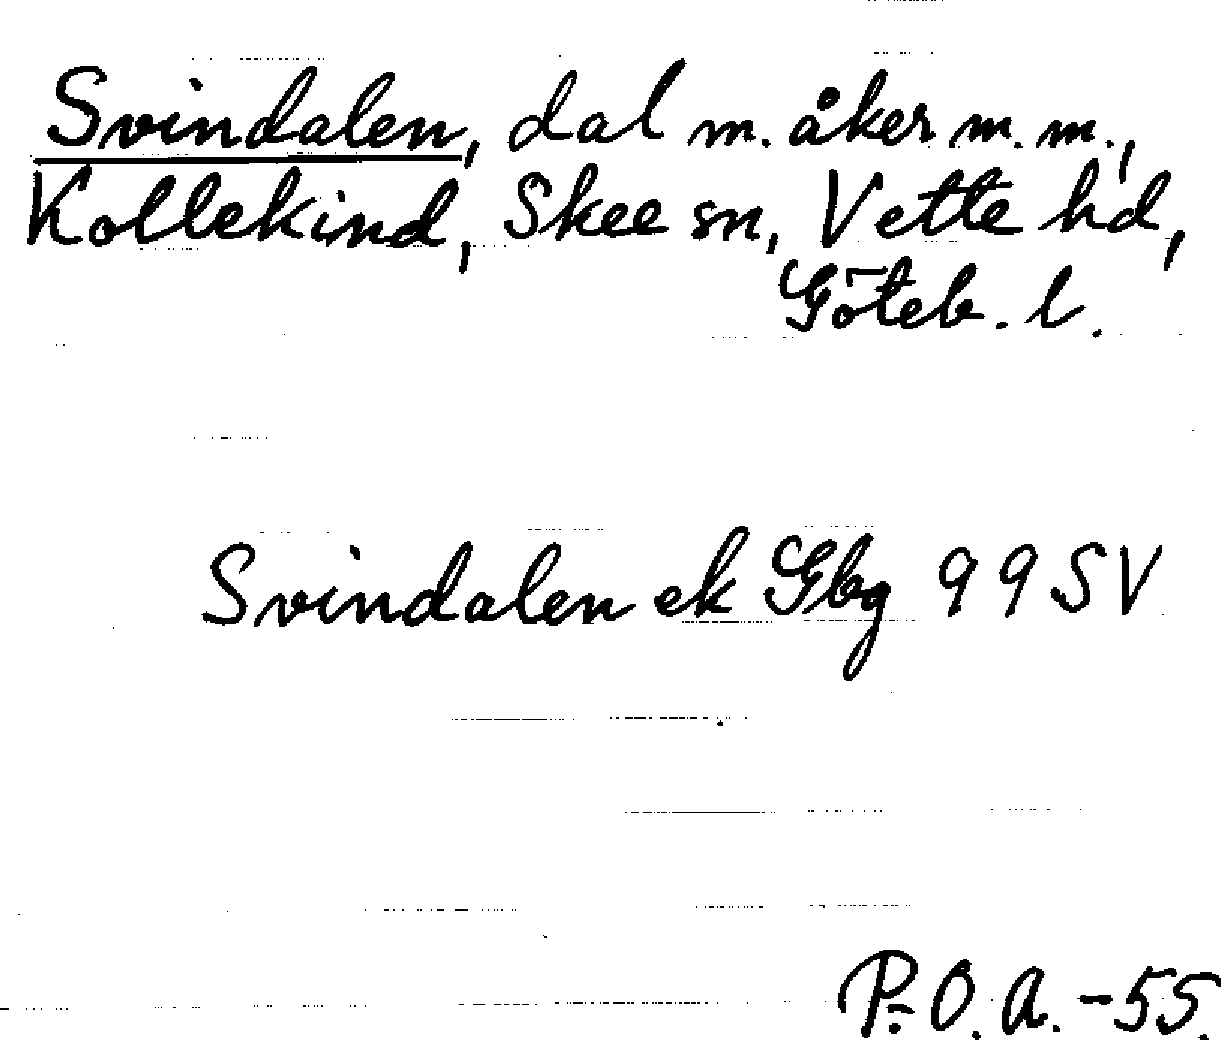 Svindalen, dal m. åker m.m.,
Kollekind, Skee sn, Vette hd,
Göteb. l.
Svindalen ek Gbg 99 SV
P:O.A.-55.